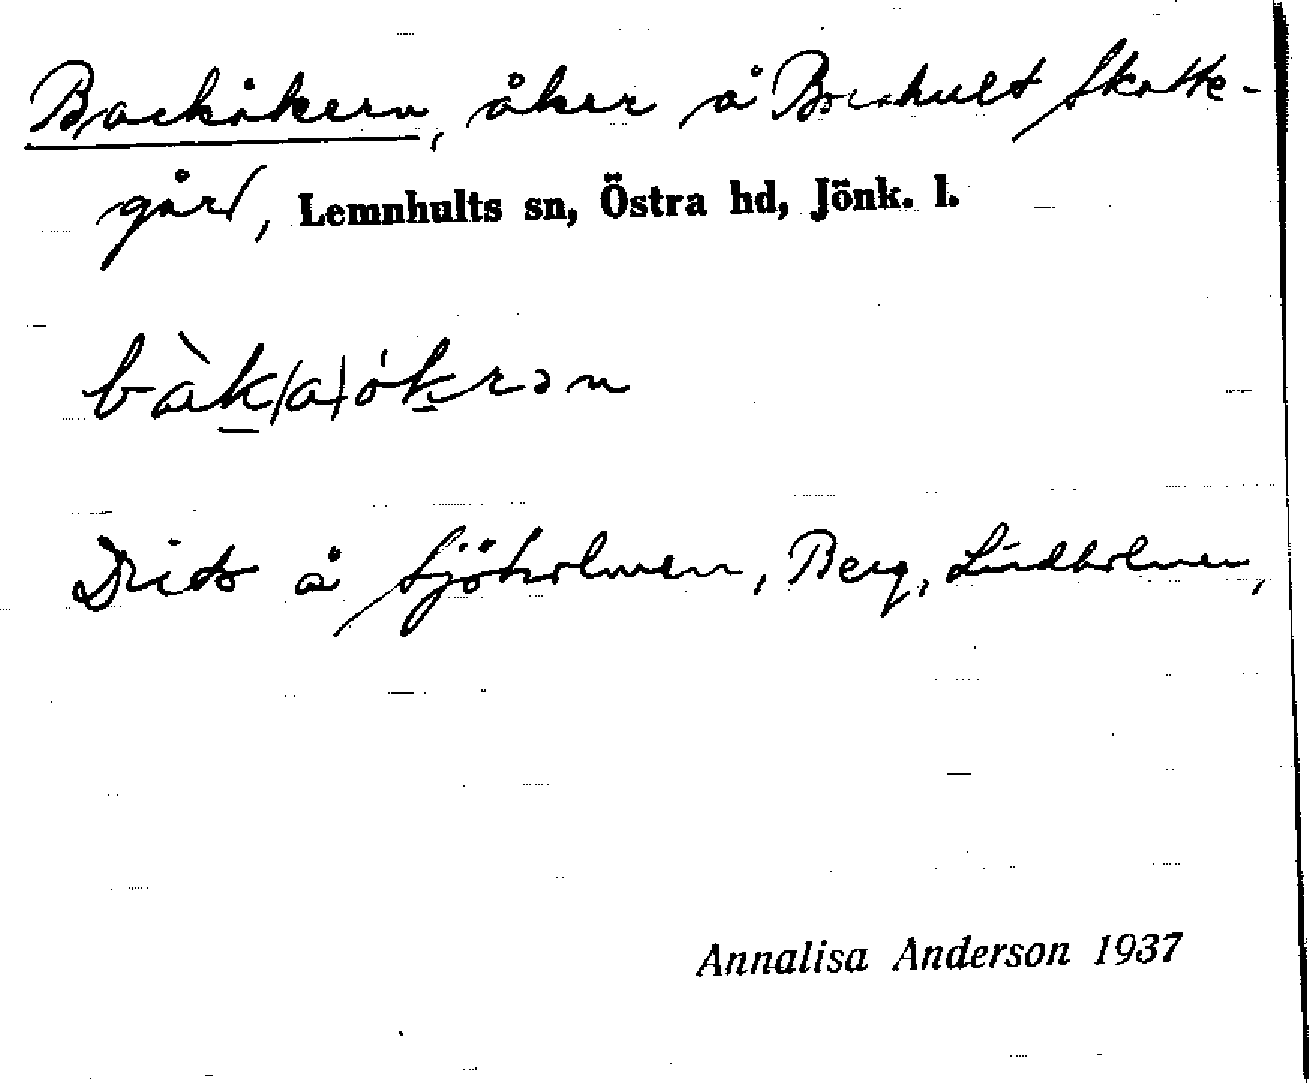 Backåkern, åker å Boahult Skatte-
gård, Lemnhults sn, Östra hd, Jönk. l.
bàk(a)ókrən
Dito å Sjöholmen, Berg, Lindholmen,
Annalisa Anderson 1937